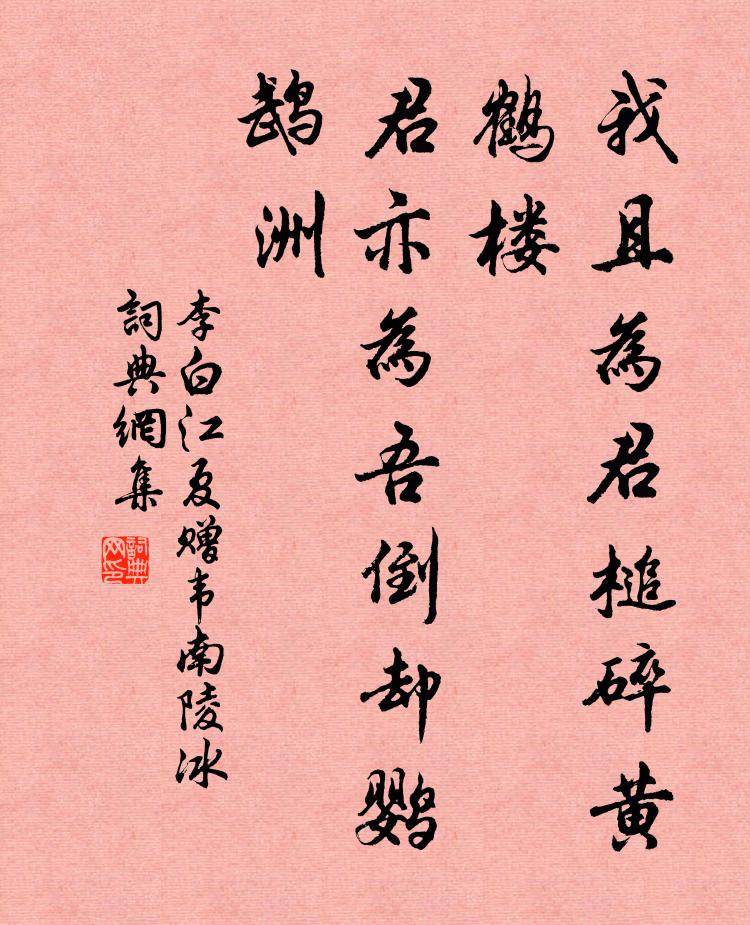 我且為君槌碎黄
鹤楼
君亦為吾倒却鹦
鹉洲
李白江夏赠韦南陵冰
詞典網集
詞典
网印